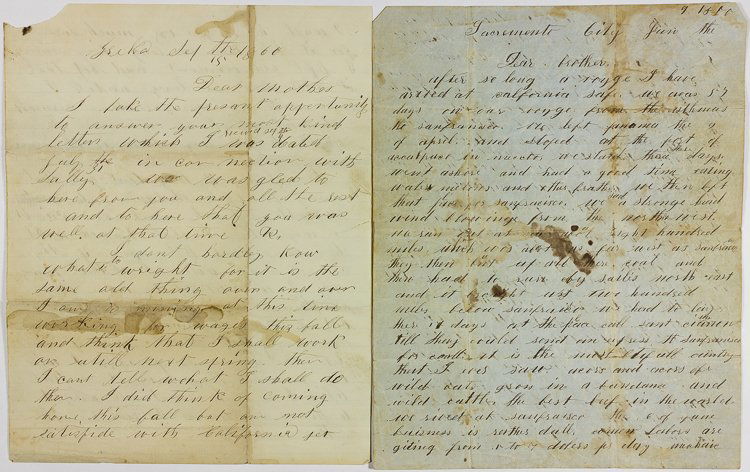 Yreka Sept 15th 1860
Dear Mother
I take the present opportunity
to answer your most kind
letter which I received dated
July in connection with
Sally we was gled to
here from you and all the rest
and to hare that you was
well at that time &c
I dont hardley know
what to wright for it is the
same old thing over and over
I am mining at this time
working for wages this fall
and think that I shall work
on untill next spring then
I cant tell what I shall do
then I did think of coming
home this fall but am not
satisfide with California yet
9 1850
Sacremento City Jun the
Dear brother
after so long a voyge I have
arrived at california safe we was 57
days on our voyge from the isthmus
to sanfransisco We left panama the 9
of april and stoped at the port of
accalpuco in mexico we staid there days
went ashore and had a good time eating
water melons and other fruthe we then left
that for sanfransisco we had a stronge head
wind blowinge from the north west
we ran out at eight hundred
miles which was as far west as sanfransico
they then out of coal and
then had to rune by sailes north east
and it brought us two hundred
miles below sanfransico we had to lay
there 11 days at the place call sant
till they could send an express to sanfransico
for coalls it is the most hily all country
that I ever saw acors and acors of
wild oats grow in abundance and
wild cattle the best beef in the world
we rived at sanfransico the 6 of june
buisness is rather dull comon labors are
giting from 5 to 7 dolers pr day mechanic